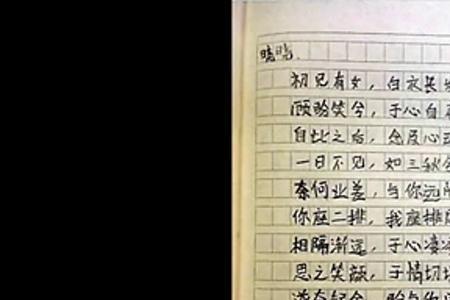 晓晓.
初见有女，白衣长
顾盼笑兮，于心自
自此之后，念及心
一日不见，如三秋
奈何业差，与你远
你座二排，我座排
相隔渐远，于心凄
思之笑颜，于情切